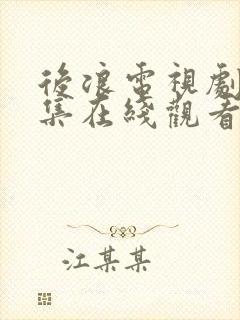 後浪電視劇
集在綫觀看
江某某